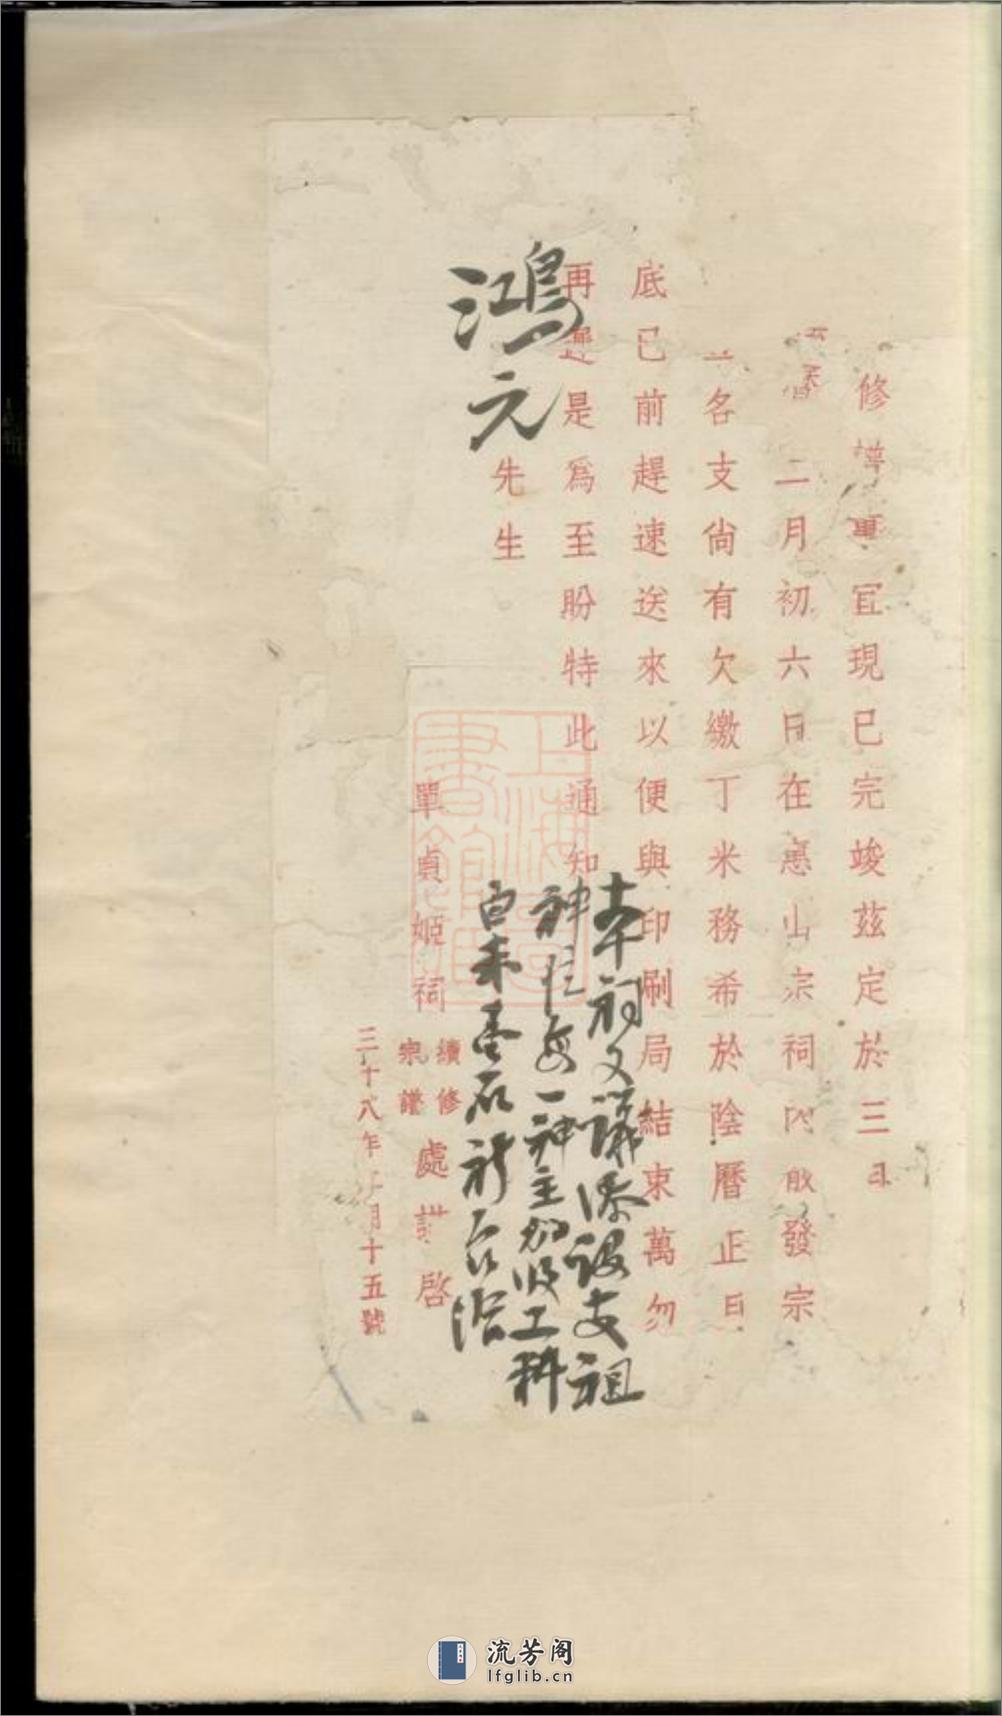 修譜事宜現已完竣茲定於三月
二月初六日在惠山宗祠內散發宗
各支尙有欠繳丁米務希於陰曆正月
底已前趕速送來以便與印刷局結束萬勿
再遲是爲至盼特此通知
鴻元先生
本祠又議添設支祖
神位每一神主加收工料
白米壹石
單貞姬祠
續修
宗譜
處謹啓
三十八年 月十五號
上海圖書館藏
流芳阁
lfglib.cn